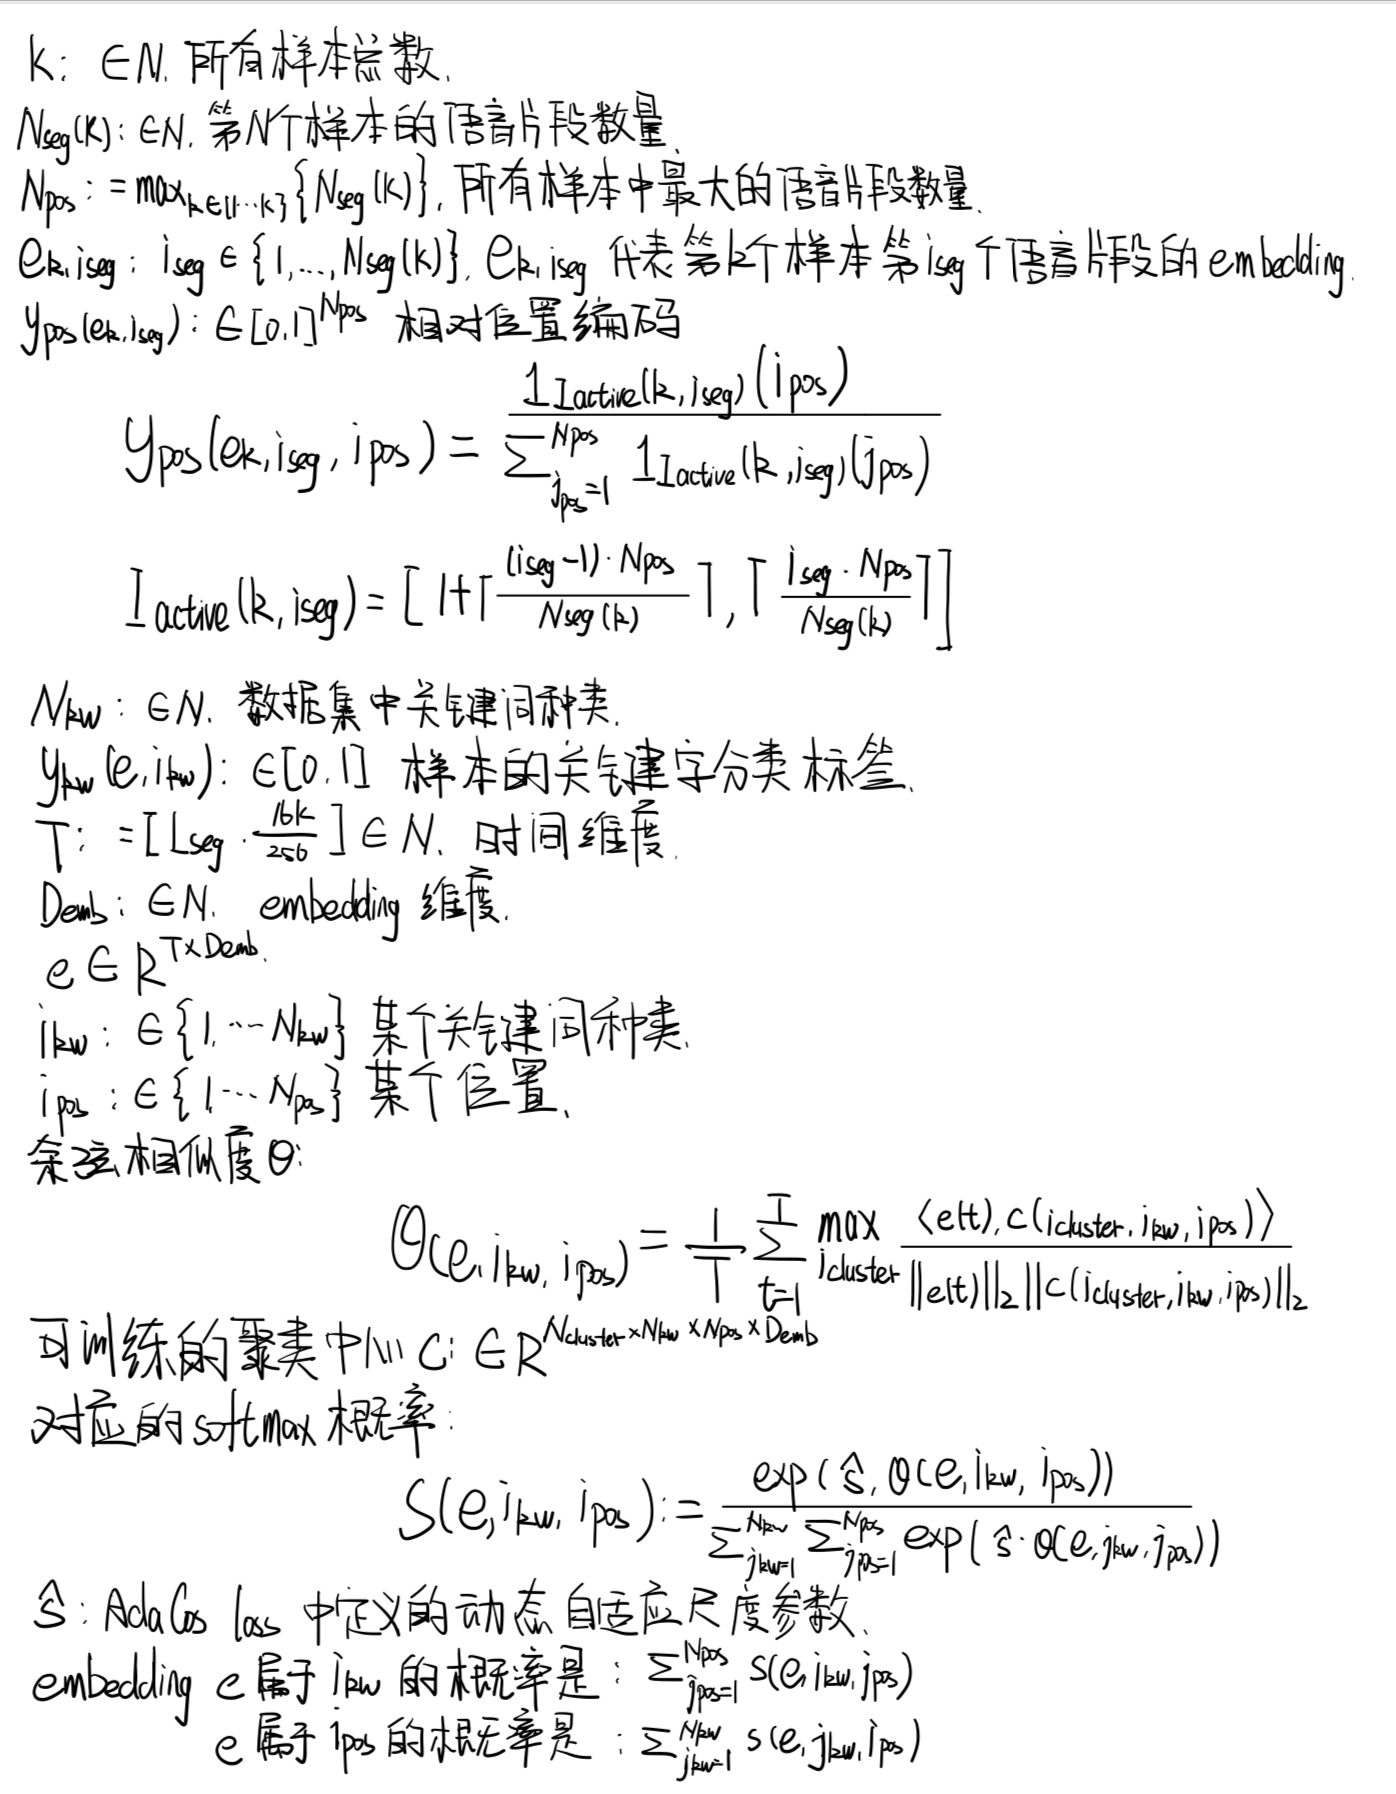 K: ∈N. 所有样本总数.
Nseg(K): ∈N. 第N个样本的语音片段数量.
Npos: =max_{k∈{1…K}}{Nseg(K)}, 所有样本中最大的语音片段数量.
e_{k,iseg}: iseg ∈ {1,...,Nseg(k)}. e_{k,iseg} 代表第k个样本第iseg个语音片段的embedding.
ypos(e_{k,iseg}): ∈[0,1]^{Npos} 相对位置编码
ypos(e_{k,iseg}, ipos) = 1_{Iactive(k,iseg)}(ipos) / Σ_{jpos=1}^{Npos} 1_{Iactive(k,iseg)}(jpos)
Iactive(k,iseg) = [1+⌈(iseg-1)·Npos / Nseg(k)⌉, ⌈iseg·Npos / Nseg(k)⌉]
Nkw: ∈N. 数据集中关键词种类.
ykw(e,ikw): ∈[0,1] 样本的关键字分类标签.
T: =[Lseg · 16k/256] ∈ N. 时间维度.
Demb: ∈N. embedding 维度.
e∈R^{T×Demb}.
ikw: ∈{1,…Nkw} 某个关键词种类.
ipos: ∈{1…Npos} 某个位置.
余弦相似度θ:
θ(e,ikw,ipos) = 1/T Σ_{t=1}^{T} max_{icluster} <e(t),c(icluster,ikw,ipos)> / ||e(t)||_2 ||c(icluster,ikw,ipos)||_2
可训练的聚类中心C: ∈R^{Ncluster×Nkw×Npos×Demb}
对应的softmax概率:
S(e,ikw,ipos): = exp(ŝ.θ(e,ikw,ipos)) / Σ_{jkw=1}^{Nkw} Σ_{jpos=1}^{Npos} exp(ŝ·θ(e,jkw,jpos))
ŝ: AdaCos loss 中定义的动态自适应尺度参数.
embedding e属于ikw的概率是: Σ_{jpos=1}^{Npos} s(e,ikw,jpos)
e属于ipos的概率是: Σ_{jkw=1}^{Nkw} s(e,jkw,ipos)